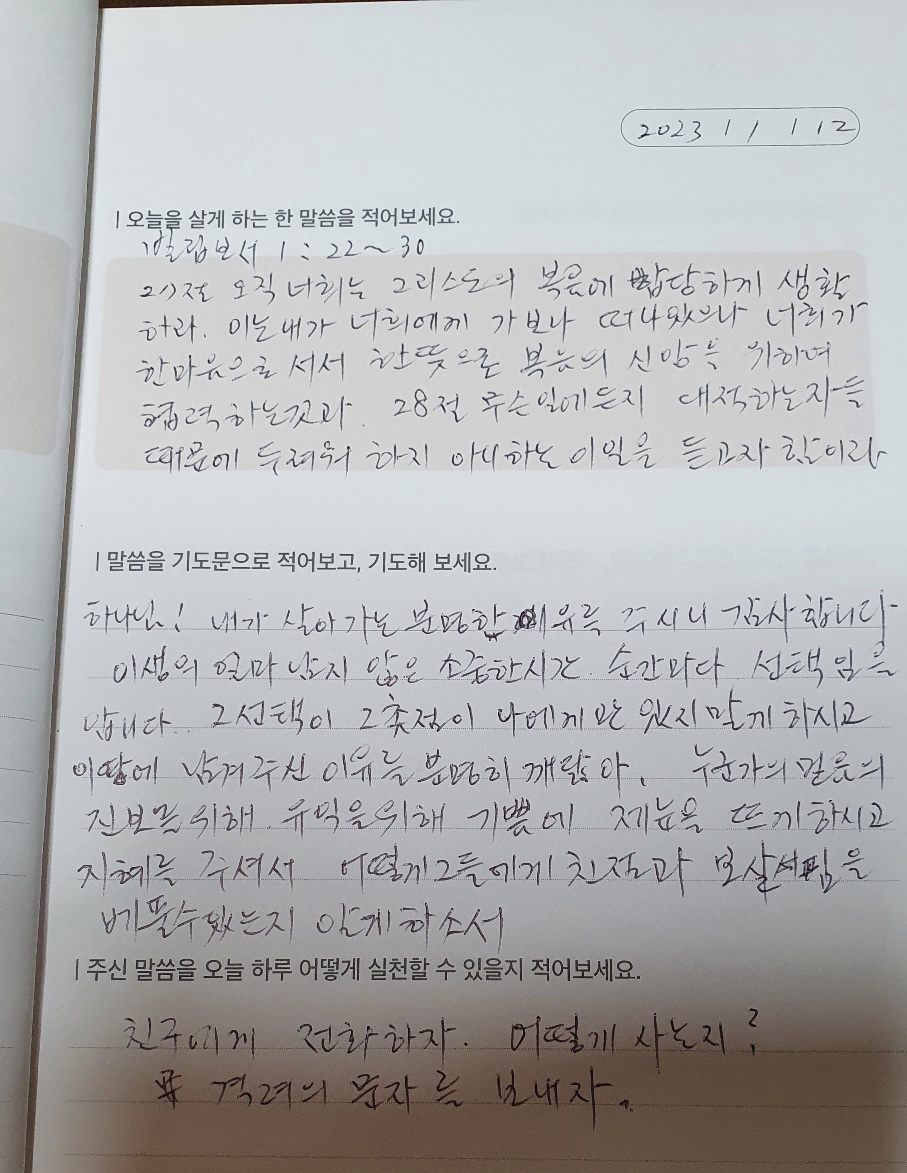 2023 / 1 / 12
| 오늘을 살게 하는 한 말씀을 적어보세요.
빌립보서 1:22~30
27절 오직 너희는 그리스도의 복음에 합당하게 생활
하라. 이는 내가 너희에게 가보나 떠나있으나 너희가
한마음으로 서서 한뜻으로 복음의 신앙을 위하여
협력하는것과 28절 무슨일에든지 대적하는자들
때문에 두려워 하지 아니하는 이일을 듣고자 함이라
| 말씀을 기도문으로 적어보고, 기도해 보세요.
하나님! 내가 살아가는 분명한 이유를 주시니 감사합니다
이생의 얼마 남지 않은 소중한시간 순간마다 선택
입니다. 그선택이 그촛점이 나에게만 있지말게 하시고
이땅에 남겨주신 이유를 분명히 깨달아, 누군가의 믿음의
진보를위해 유익을위해 기쁨에 을 뜨게하시고
지혜를 주셔서 어떻게그들에게 친절과 보살핌을
베풀수있는지 알게하소서
| 주신 말씀을 오늘 하루 어떻게 실천할 수 있을지 적어보세요.
친구에게 전화하자. 어떻게 사는지?
격려의 문자를 보내자.